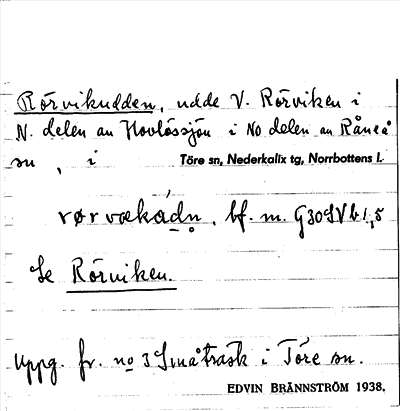 Rörvikudden, udde V. Rörviken i
N. delen av Hovlössjön i No delen av Råneå
sn, i Töre sn, Nederkalix tg, Norrbottens l.
rørvækádn, bf. m. G30SV b 1,5
Se Rörviken.
Uppg. fr. no 3 Småträsk i Töre sn.
EDVIN BRÄNNSTRÖM 1938.